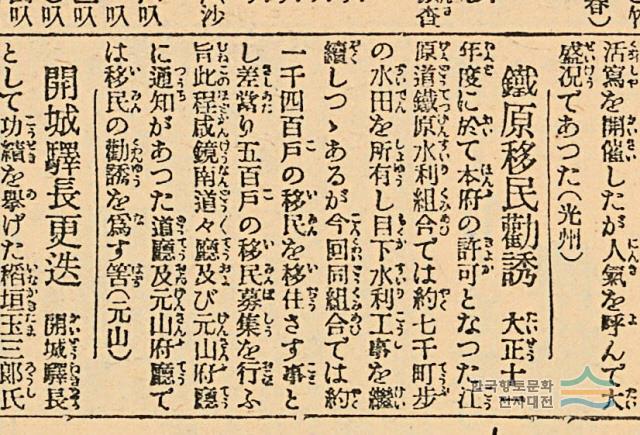 活寫を開催したが人氣を呼んで大
盛況であつた(光州)
鐵原移民勸誘 大正十一
年度に於て本府の許可となつた江
原道鐵原水利組合では約七千町步
の水田を所有し目下水利工事を繼
續しつゝあるが今回同組合では約
一千四百戸の移民を移住さす事と
し差當り五百戸の移民募集を行ふ
旨此程咸鏡南道々廳及び元山府廳
に通知があつた道廳及元山府廳で
は移民の勸誘を爲す筈(元山)
開城驛長更迭 開城驛長
として功績を擧げた稻垣玉三郎氏
한국향토문화
전자대전